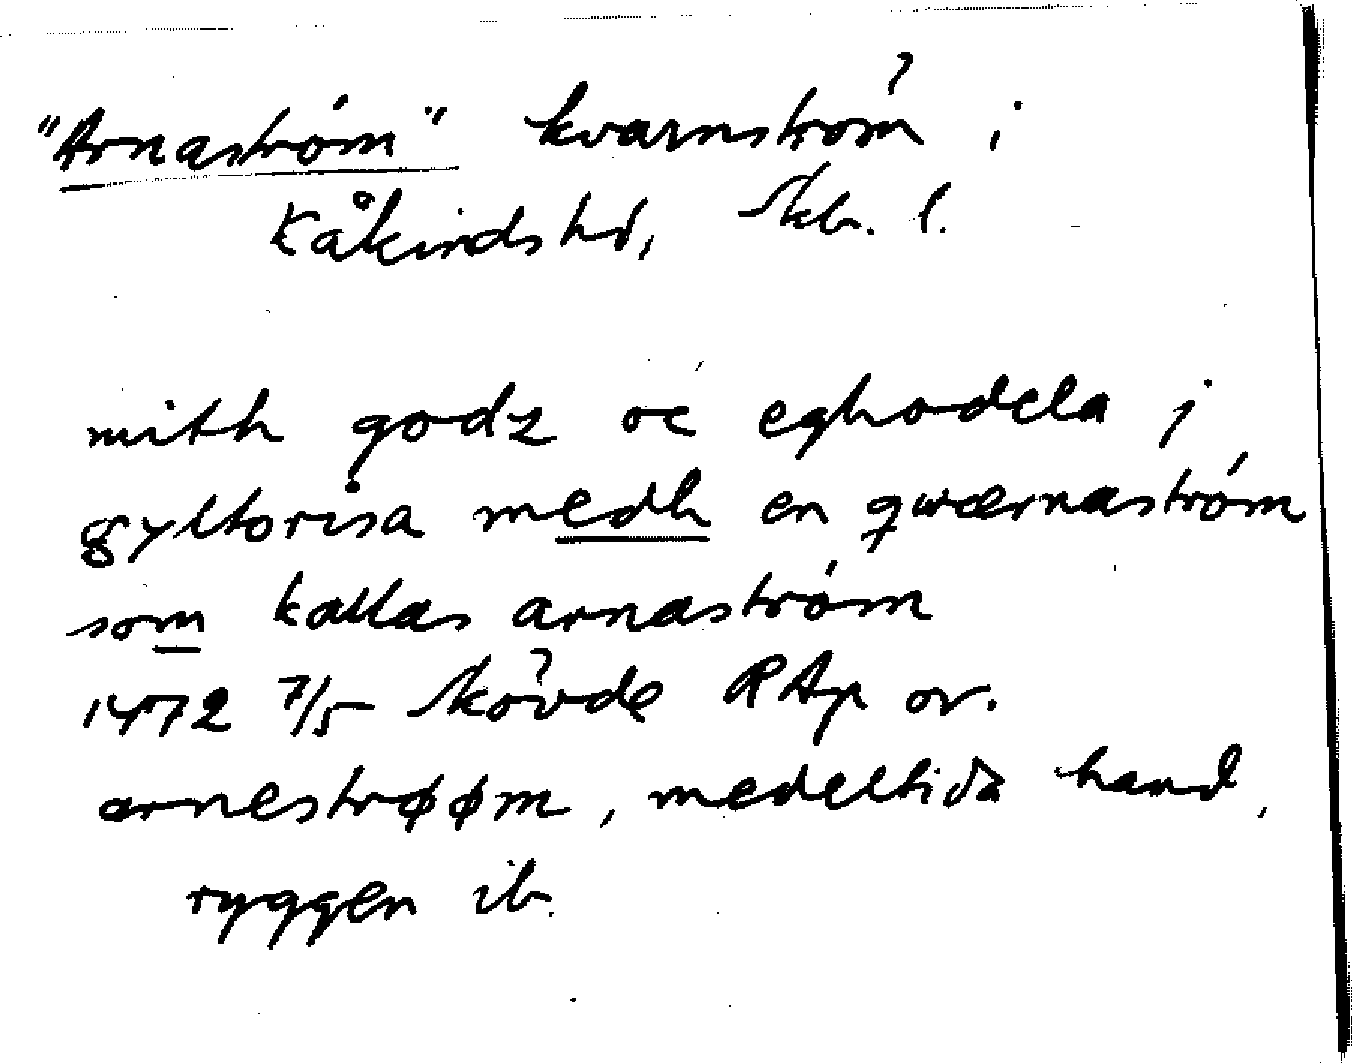 "Arnaström" kvarnström i
Kåkinds hd, Skb. l.
mith godz oc eghodela j
gyltorisa medh en qwærnaström
som kallas arnaström
1472 7/5 Skövde RAp or.
arnestrøøm, medeltida hand,
ryggen ib.